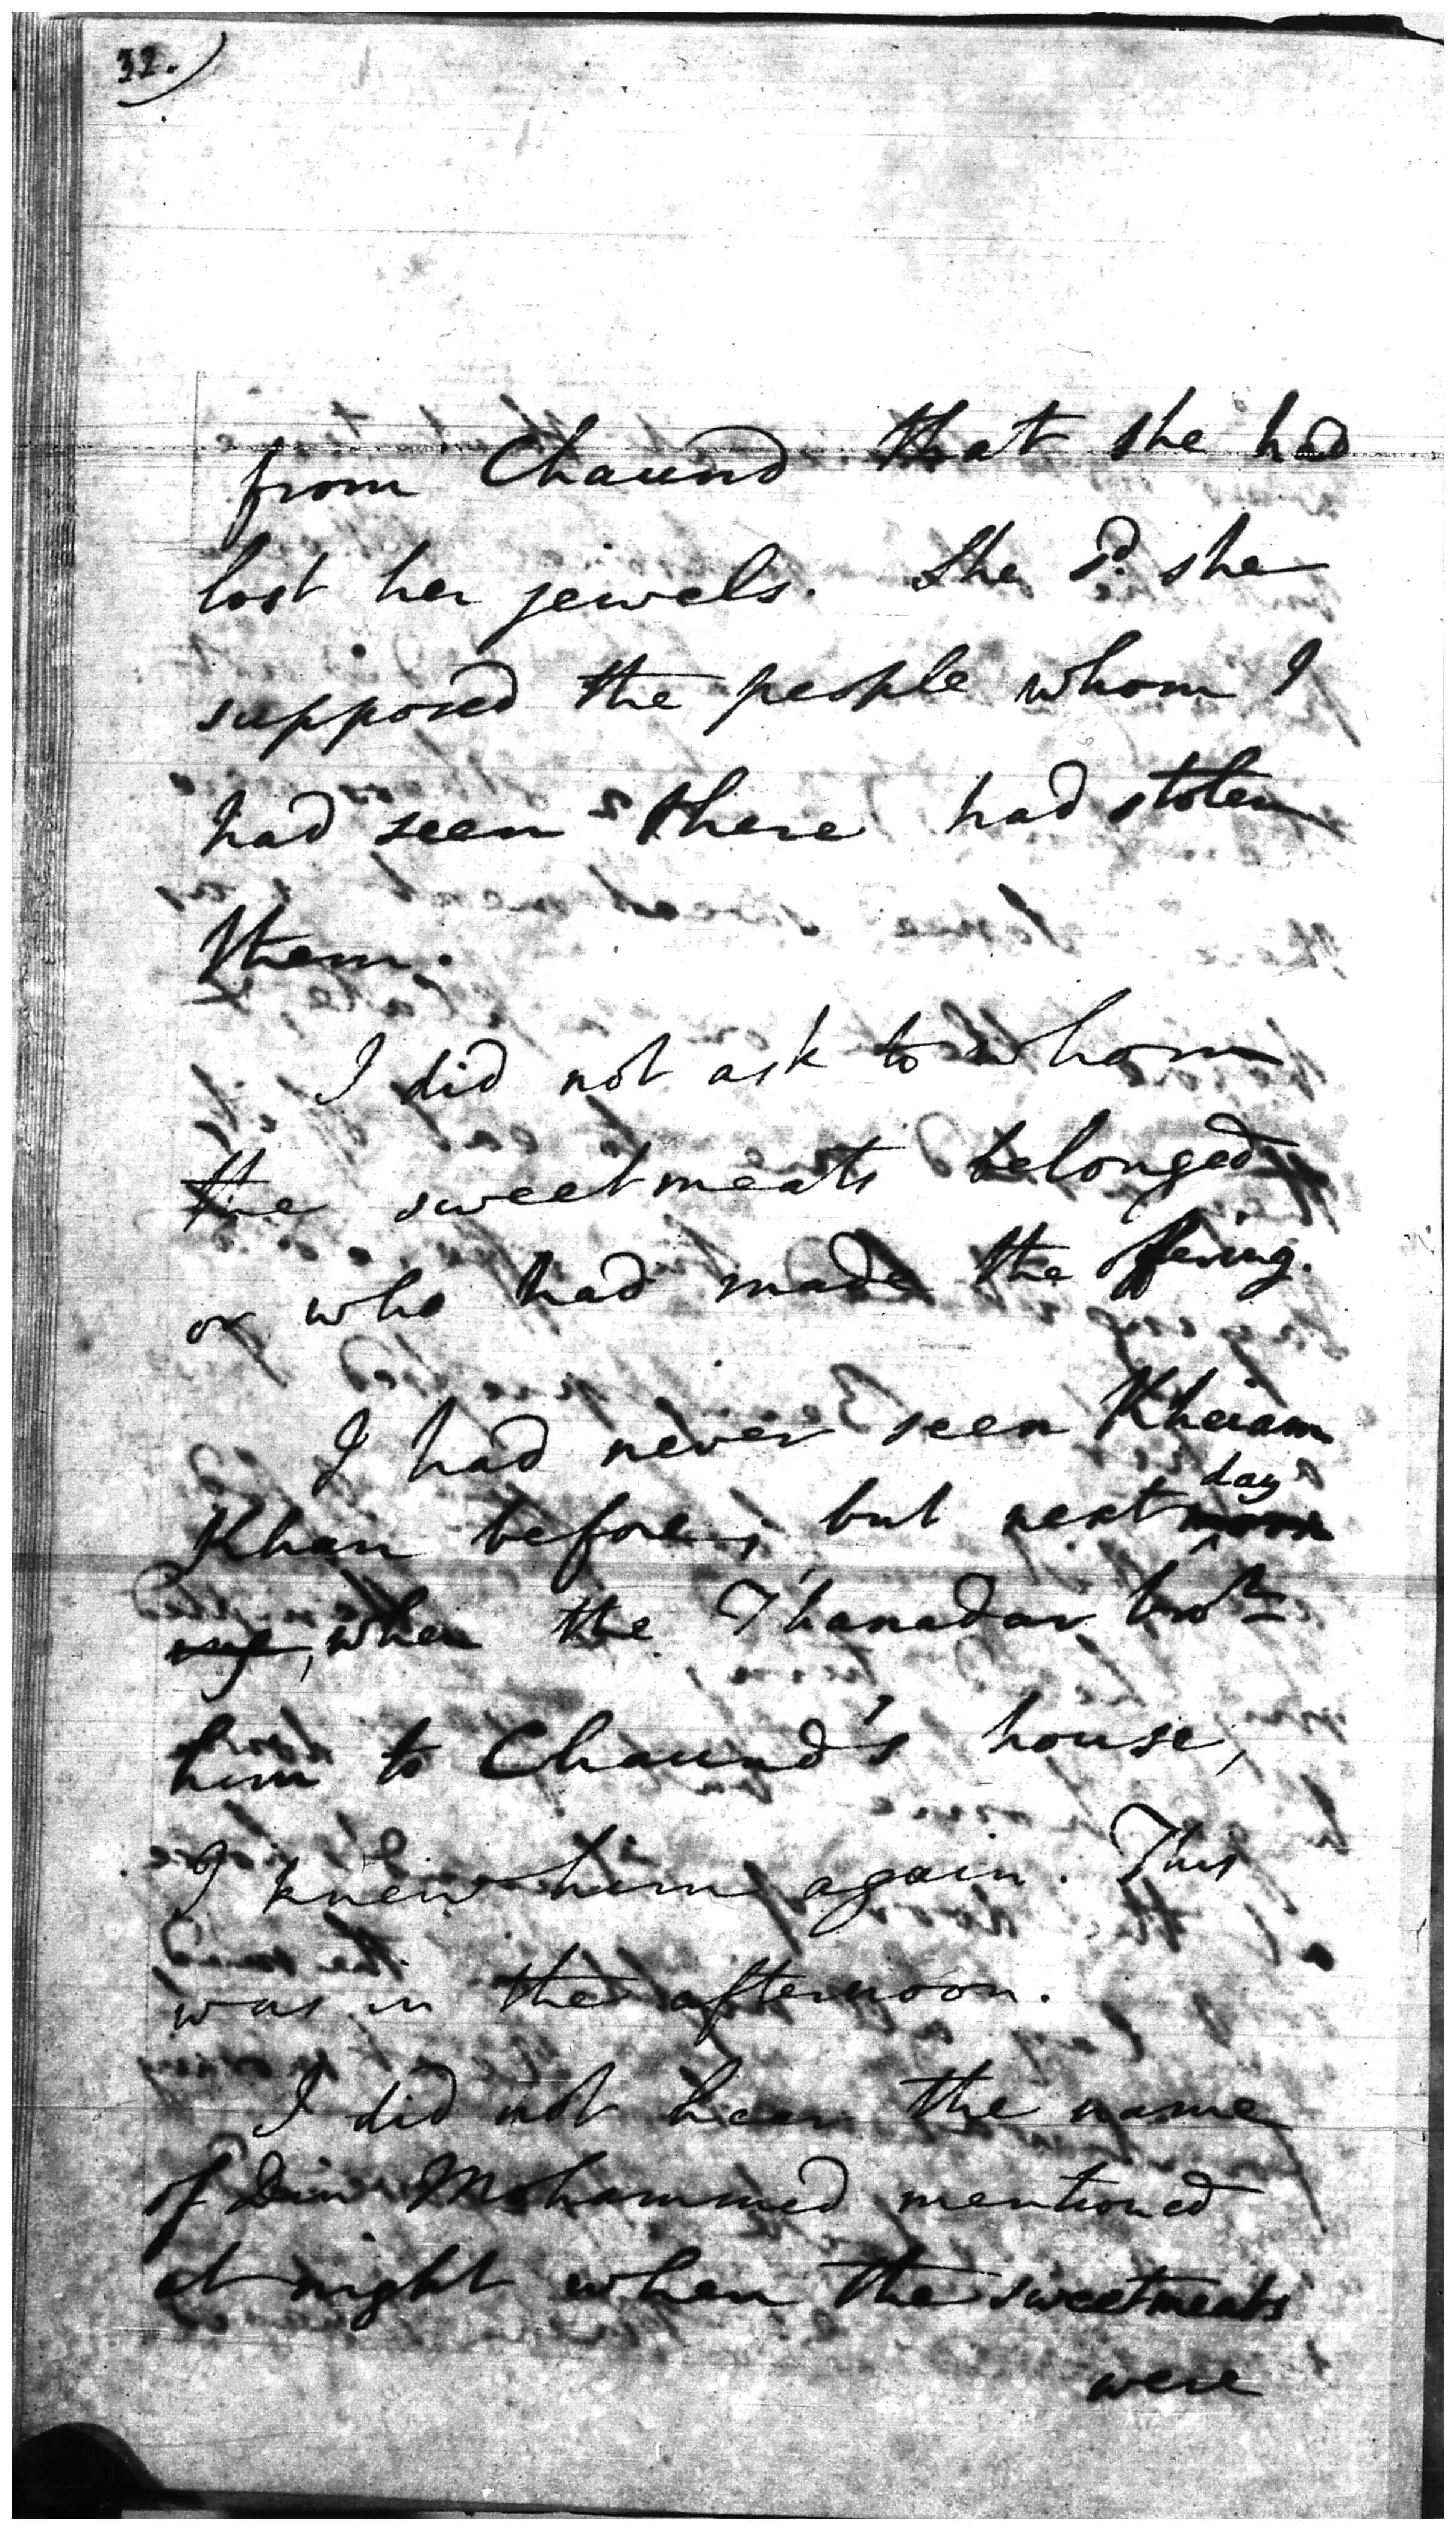 32.)
from Chaund that she had
lost her jewels. She Sd. she
supposed the people whom I
had seen there had stolen
them.
I did not ask to whom
the sweetmeats belonged
or who had made the offering.
I had never seen Kheiam
day
Khan before; but next morn
ing, when the Thanadar brot
him to Chaund's house,
I knew him again. This
was in the afternoon.
I did not hear the name
of Din Mohammed mentioned
at night when the sweetmeats
were